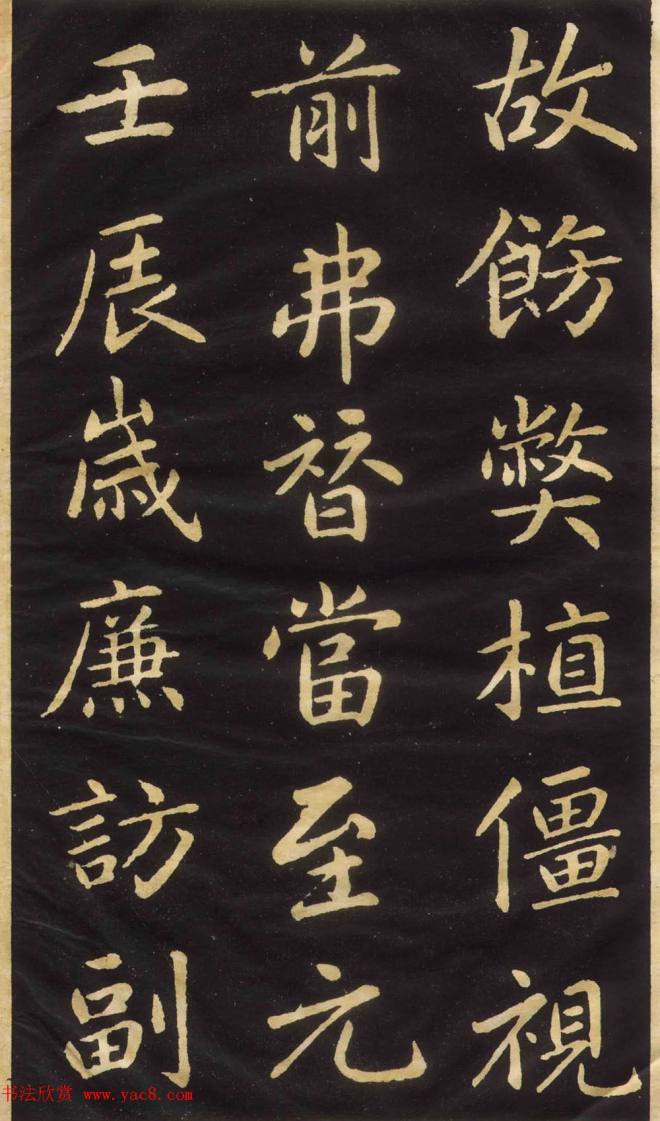 故餝弊植僵視
前弗替當至元
壬辰歲廉訪副
书法欣赏 www.yac8.com